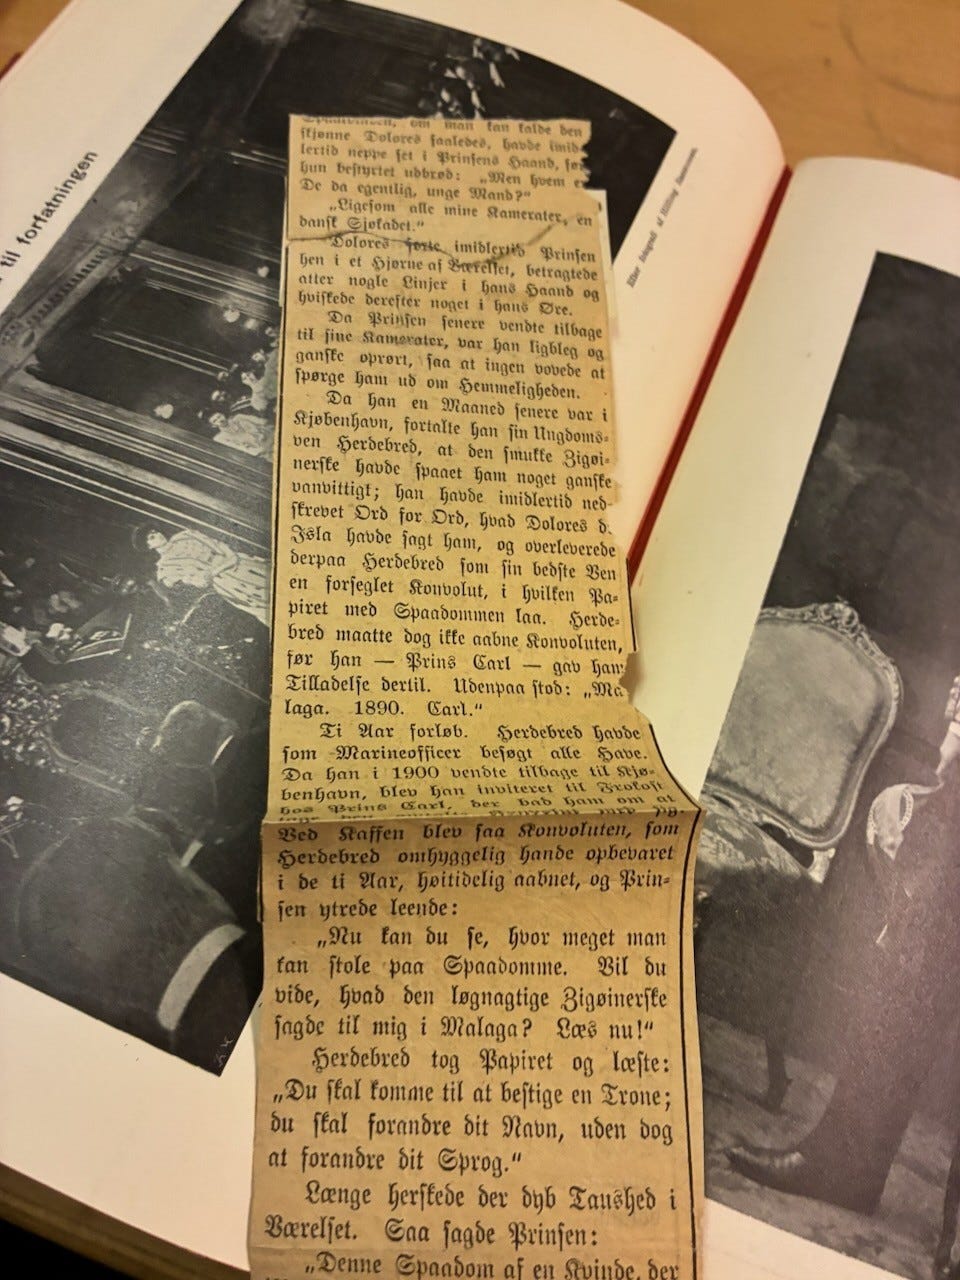 til forfatningen
Efter fotografi af
Spaakvinden, om man kan kalde den
skjønne Dolores saaledes, havde imid-
lertid neppe set i Prinsens Haand, før
hun bestyrtet udbrød: „Men hvem er
De da egentlig, unge Mand?“
„Ligesom alle mine Kamerater, en
dansk Sjøkadet.“
Dolores førte imidlertid Prinsen
hen i et Hjørne af Værelset, betragtede
atter nogle Linjer i hans Haand og
hviskede derefter noget i hans Øre.
Da Prinsen senere vendte tilbage
til sine Kamerater, var han ligbleg og
ganske oprørt, saa at ingen vovede at
spørge ham ud om Hemmeligheden.
Da han en Maaned senere var i
Kjøbenhavn, fortalte han sin Ungdoms-
ven Herdebred, at den smukke Zigøi-
nerske havde spaaet ham noget ganske
vanvittigt; han havde imidlertid ned-
skrevet Ord for Ord, hvad Dolores d.
Isla havde sagt ham, og overleverede
derpaa Herdebred som sin bedste Ven
en forseglet Konvolut, i hvilken Pa-
piret med Spaadommen laa. Herde-
bred maatte dog ikke aabne Konvoluten,
før han — Prins Carl — gav ham
Tilladelse dertil. Udenpaa stod: „Ma
laga. 1890. Carl.“
Ti Aar forløb. Herdebred havde
som Marineofficer besøgt alle Have.
Da han i 1900 vendte tilbage til Kjø-
benhavn, blev han inviteret til Frokost
hos Prins Carl, der bad ham om at
Ved Kaffen blev saa Konvoluten, som
Herdebred omhyggelig hande opbevaret
i de ti Aar, høitidelig aabnet, og Prin-
sen ytrede leende:
„Nu kan du se, hvor meget man
kan stole paa Spaadomme. Vil du
vide, hvad den løgnagtige Zigøinerske
sagde til mig i Malaga? Læs nu!“
Herdebred tog Papiret og læste:
„Du skal komme til at bestige en Trone;
du skal forandre dit Navn, uden dog
at forandre dit Sprog.“
Længe herskede der dyb Taushed i
Værelset. Saa sagde Prinsen:
„Denne Spaadom af en Kvinde, der